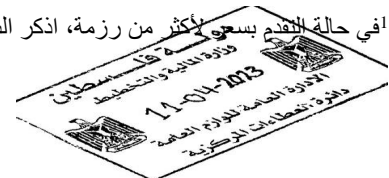 1في حالة التقدم بسعر لأكثر من رزمة، اذكر
دولة فلسطين
وزارة المالية والتخطيط
11-04-2023
الادارة العامة للوازم العامة
دائرة العطاءات المركزية